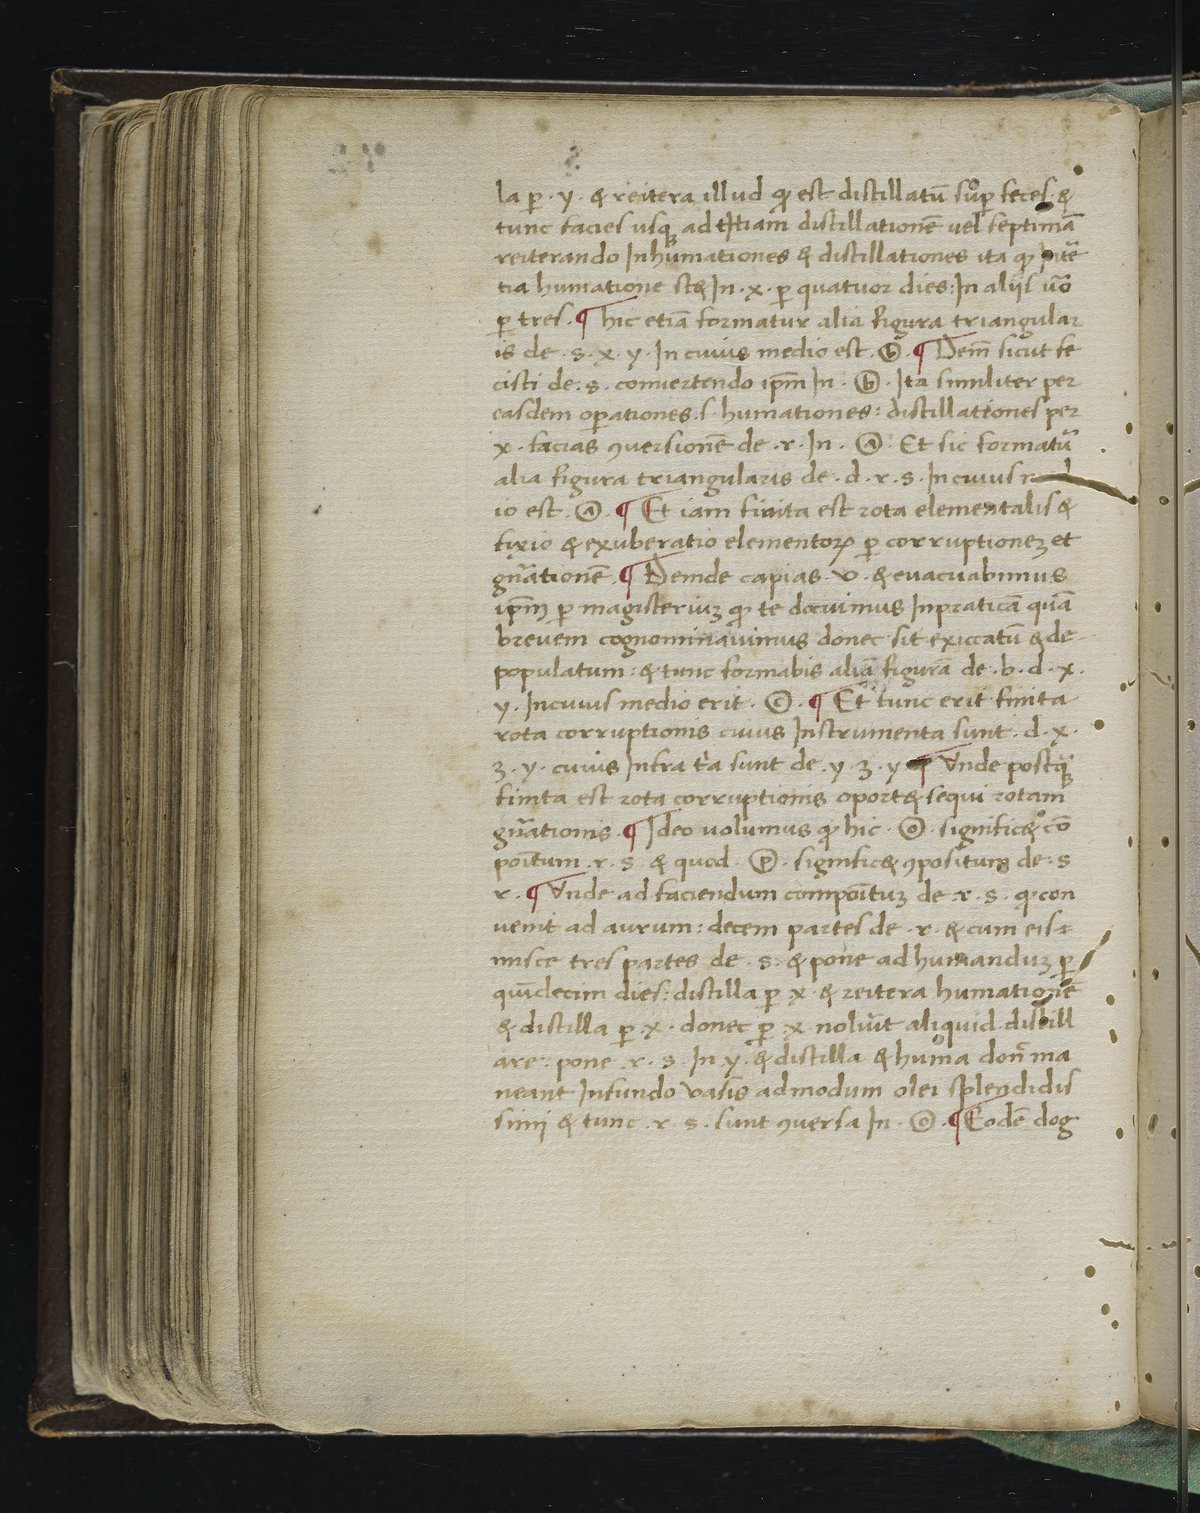 la ꝑ · y · & reitera illud qͥ est distillatū suꝑ feces &
tunc facies usqꝫ ad tҍtiam distillationē uel septimā
reiterando Inhumationes & distillationes ita qͥ
tia humatione stꝫ In · x · ꝑ quatuor dies: In aliis uͦo
ꝑ tres. ¶ hic etiā formatur alia figura triangular
is de · s · x · y · In cuius medio est · ⓑ · ¶ Dem̄ sicut fe
cisti de · s · conuertendo ip̄m In · ⓑ · Ita similiter per
easdem oꝑationes · s · humationes: distillationes per
x · facias ꝯuersionē de · r · In · Ⓐ · Et sic formatᷣ
alia figura triangularis de · d · r · s · In cuius
io est · Ⓐ · ¶ Et iam finita est rota elementalis &
fixio & exuberatio elementoꝝ ꝑ corruptioneꝫ et
gn̄ationē ¶ Deinde capias · v · & euacuabimus
ip̄m ꝑ magisteriuꝫ qͥ te docuimus Inpraticā quā
breuem cognominauimus donec sit exiccatū & de
populatum: & tunc formabis aliā figurā de · b · d · x ·
y · Incuius medio erit · ⓒ · ¶ Et tunc erit finita
rota corruptionis cuius Instrumenta sunt · d · x ·
3 · y · cuius Infra t̄ra sunt de · y · 3 · y ¶ Vnde postqꝫ
finita est rota corruptionis oportꝫ sequi rotam
gn̄ationis ¶ Ideo uolumus qͥ hic · ⓞ · significꝫ cō
poītum · r · s · & quod · ⓟ · significꝫ ꝯpositum de · s
r · ¶ Vnde ad faciendum compoītuꝫ de · r · s · qͥ con
uenit ad aurum: decem partes de · r · & cum eis ī
misce tres partes de · s · & pone ad humanduꝫ ꝑ
quīdecim dies: distilla ꝑ x · & reitera humationē
& distilla ꝑ · x · donec ꝑ · x noluit aliquid distill
are: pone · r · s · In y · & distilla & huma don̄ ma
neant Infundo vasis admodum olei splendidis
simi & tunc · r · s · sunt ꝯuersa In · ⓞ · ¶ Eodē dog